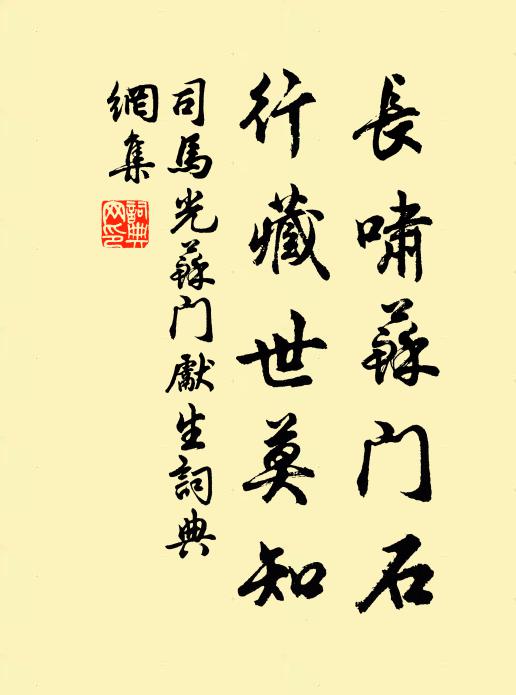 長嘯蘇门石
行藏世莫知
司馬光蘇门獻生詞典
網集
詞典
网印